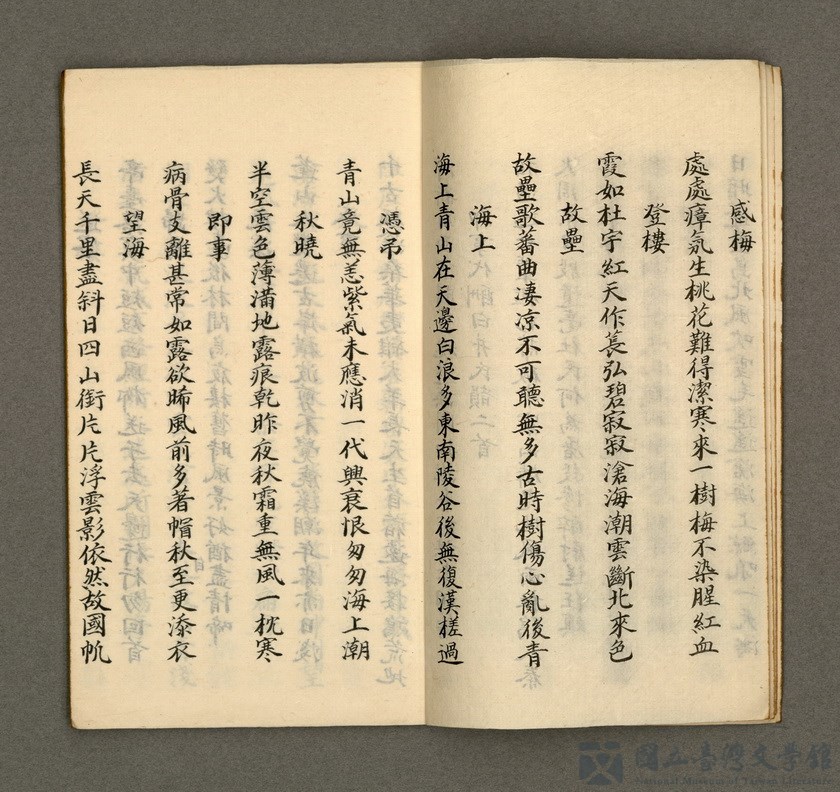 感梅
處處瘴氣生桃花難得潔寒來一樹梅不染腥紅血
登樓
霞如杜宇紅天作萇弘碧寂寂滄海潮雲斷北來色
故壘
故壘歌蕃曲淒凉不可聽無多古時樹傷心亂後青
海上
海上青山在天邊白浪多東南陵谷後無復漢槎過
憑弔
青山竟無恙紫氣未應消一代興衰恨匆匆海上潮
秋曉
半空雲色薄滿地露痕乾昨夜秋霜重無風一枕寒
即事
病骨支離甚常如露欲晞風前多著帽秋至更添衣
望海
長天千里盡斜日四山銜片片浮雲影依然故國帆
國立臺灣文學館
National Museum of Taiwan Literature